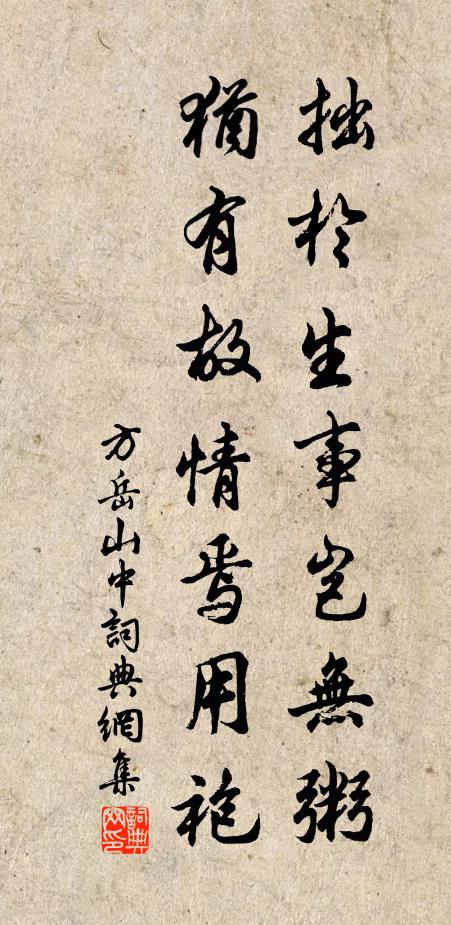 拙於生事豈無粥
猶有故情焉用袍
方岳山中詞典網集
詞典
网印